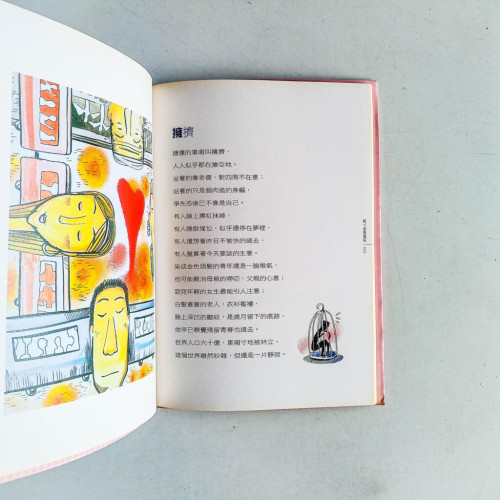 擁擠
捷運的車廂叫擁擠,
人人似乎都在搶空地。
坐著的像老僧,對四周不在意;
站著的只是個肉造的身軀,
爭先恐後已不像是自己。
有人臉上擦紅抹綠,
有人睡眼惺忪,似乎還停在夢裡,
有人還想著昨日不愉快的過去,
有人盤算著今天要談的生意。
染成金色頭髮的青年還是一臉稚氣,
他可能難治母親的嘮叨、父親的心意;
荳蔻年輕的女生最能引人注意;
白髮蒼蒼的老人,衣衫襤褸,
臉上深凹的皺紋,是歲月留下的痕跡,
他早已察覺殘留青春也成過去。
世界人口六十億,車廂寸地被林立,
這個世界雖然吵雜,但還是一片靜寂。